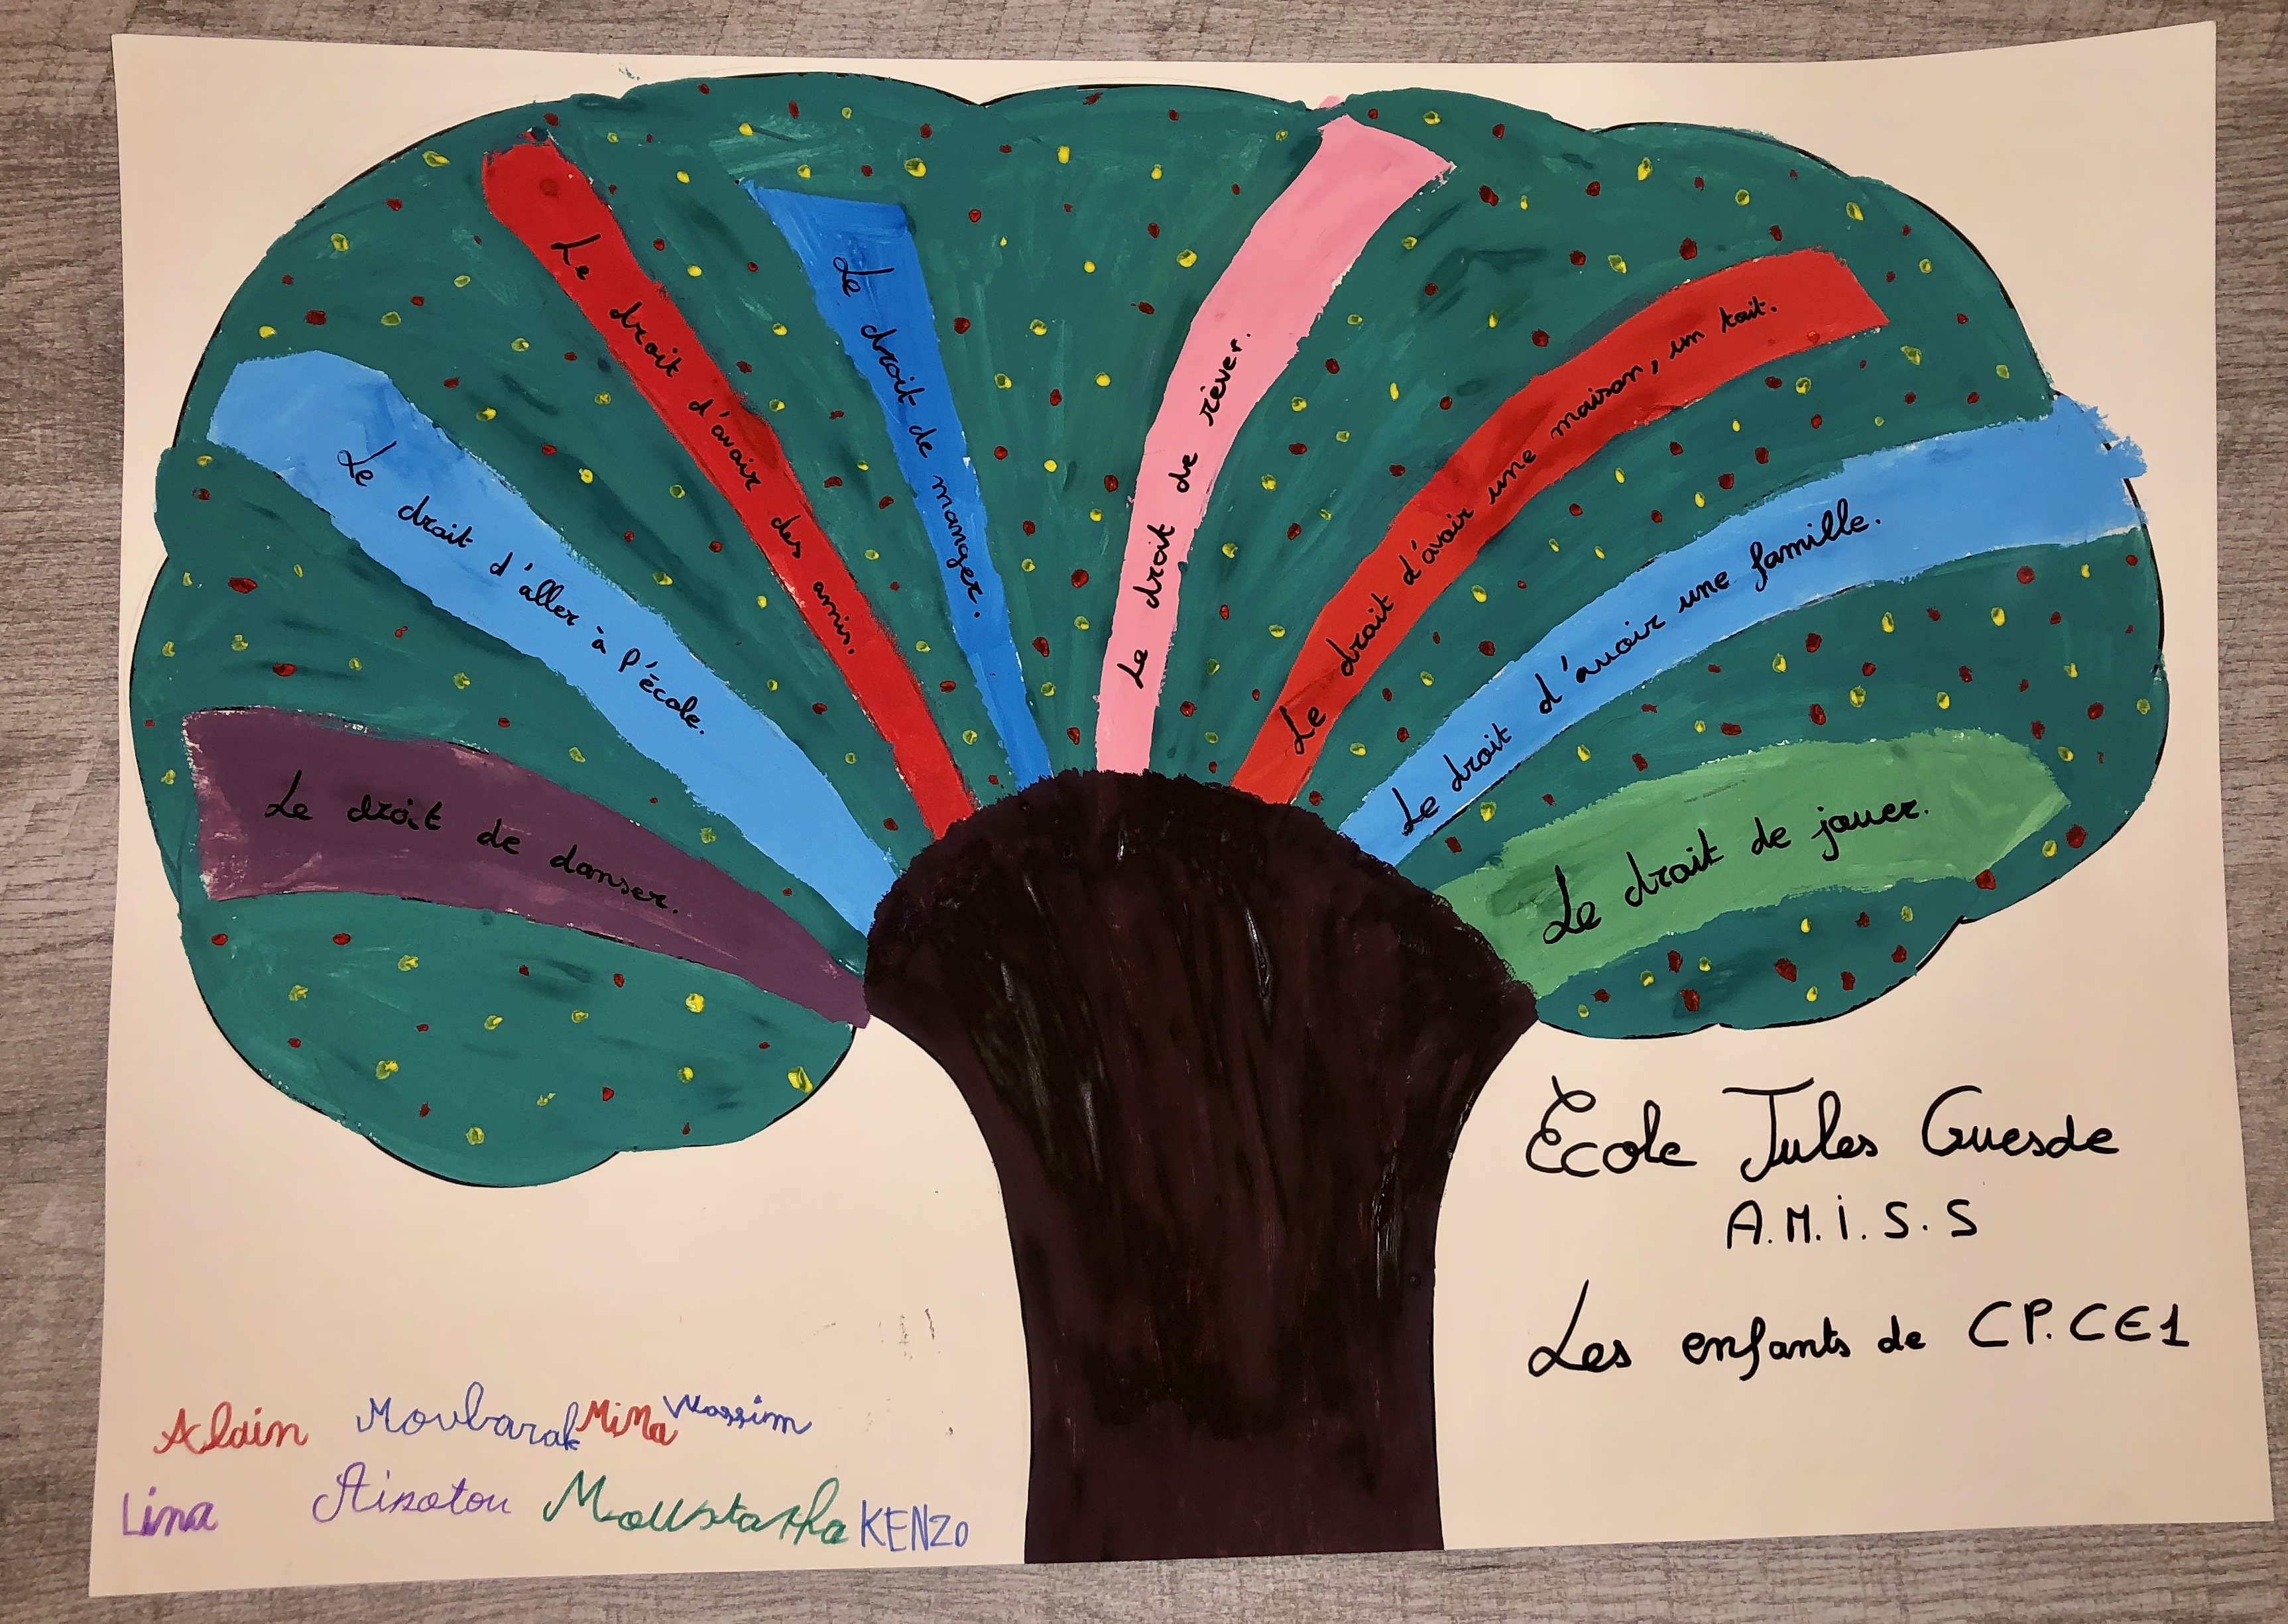 Le droit de danser.
Le droit d'aller à l'école.
Le droit d'avoir des amis.
Le droit de manger.
Le droit de rêver.
Le droit d'avoir une maison, un toit.
Le droit d'avoir une famille.
Le droit de jouer.
Ecole Jules Guesde
A.M.i.S.S
Les enfants de CP.CE1
Alain Moubarak MiNa Wassim
Lina Aisatou Moustapha KENZO